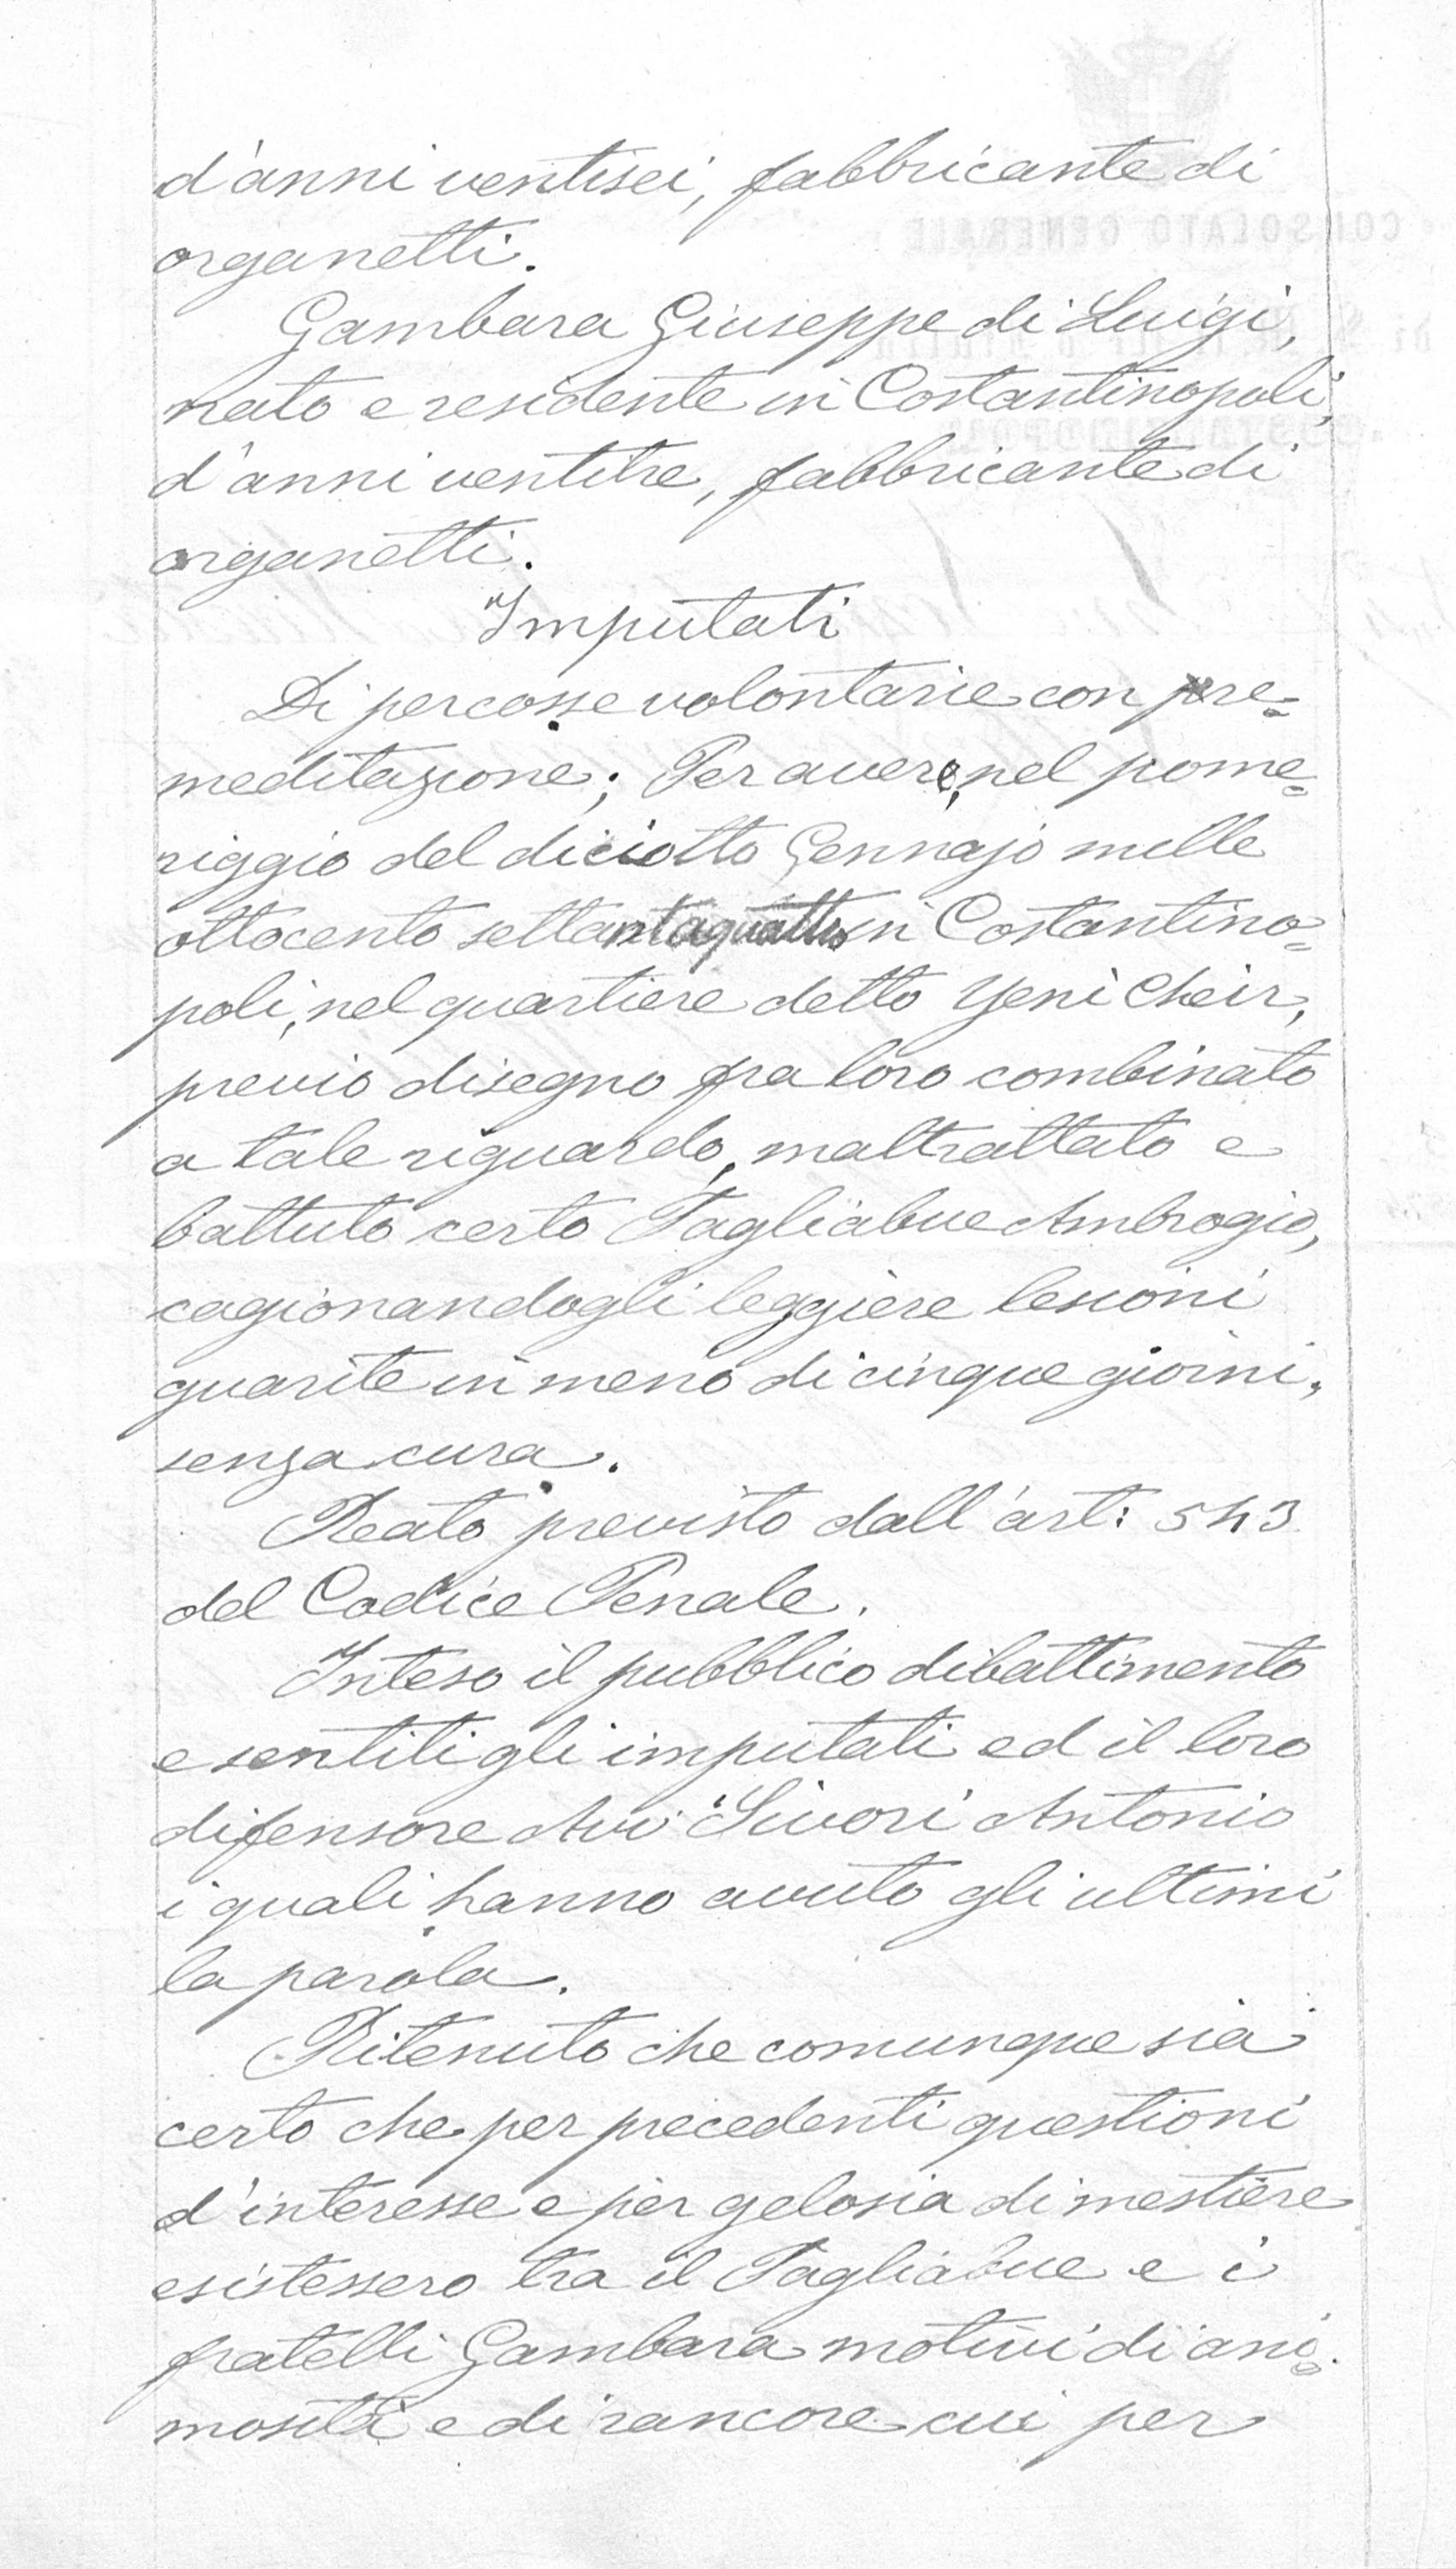 d'anni ventisei, fabbricante di
organetti.
Gambara Giuseppe di Luigi,
nato e residente in Costantinopoli,
d'anni ventitre, fabbricante di
organetti.
Imputati
Di percosse volontarie con pre=
meditazione; Per avere, nel pome=
riggio del diciotto Gennajo mille
ottocento settantaquattro in Costantino=
poli, nel quartiere detto Yeni Cheir,
previo disegno fra loro combinato
a tale riguardo, maltrattato e
battuto certo Tagliabue Ambrogio,
cagionandogli leggiere lesioni
guarite in meno di cinque giorni,
senza cura.
Reato previsto dall'art: 543
del Codice Penale.
Inteso il pubblico dibattimento
e sentiti gli imputati ed il loro
difensore Avv. Livori Antonio
i quali hanno avuto gli ultimi
la parola.
Ritenuto che comunque sia
certo che per precedenti questioni
d'interesse e per gelosia di mestiere
esistessero tra il Tagliabue e i
fratelli Gambara motivi di ani=
mosità e di rancore cui per
CONSOLATO GENERALE